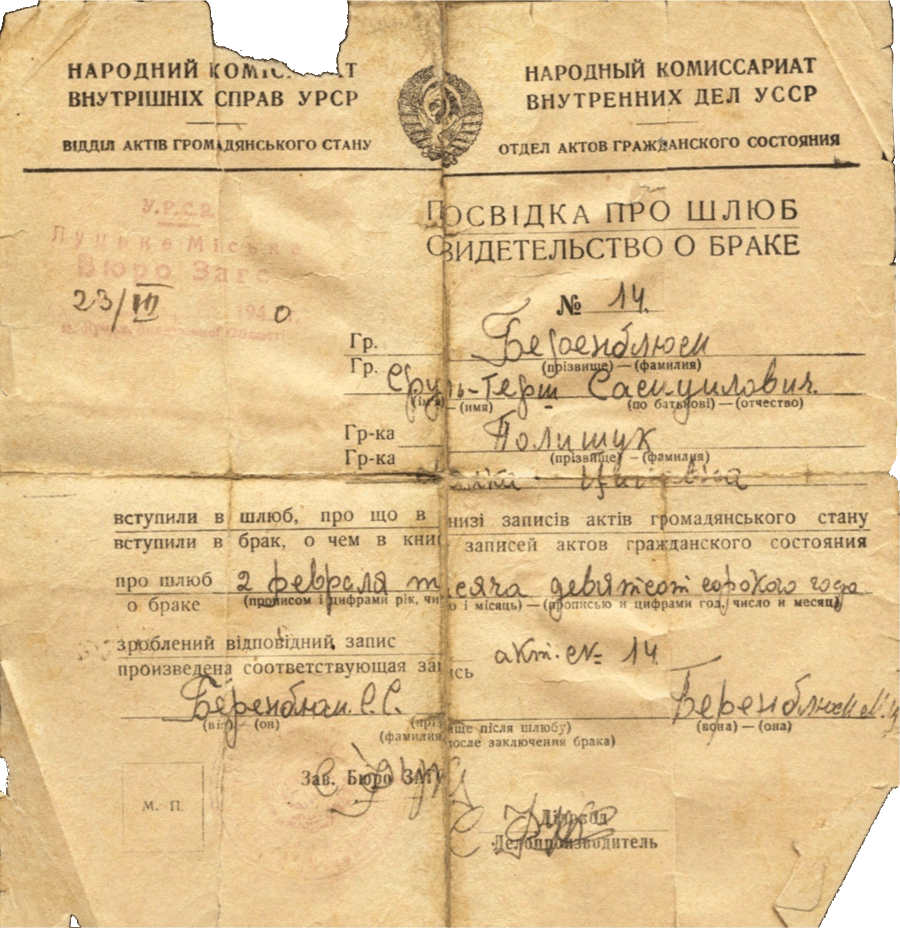 НАРОДНИЙ КОМІС АТ
ВНУТРІШНІХ СПРАВ УРСР
ВІДДІЛ АКТІВ ГРОМАДЯНСЬКОГО СТАНУ
НАРОДНЫЙ КОМИССАРИАТ
ВНУТРЕННИХ ДЕЛ УССР
ОТДЕЛ АКТОВ ГРАЖДАНСКОГО СОСТОЯНИЯ
У.Р.С.Р.
Луцьке Міське
Бюро Загс
23/III 1940
ПОСВІДКА ПРО ШЛЮБ
СВИДЕТЕЛЬСТВО О БРАКЕ
№ 14.
Гр. Беренблюм
(прізвище) — (фамилия)
Гр. Сруль-Герш Самуилович.
(ім'я) — (имя) (по батькові) — (отчество)
Гр-ка Полищук
Гр-ка (прізвище) — (фамилия)
вступили в шлюб, про що в книзі записів актів громадянського стану
вступили в брак, о чем в книге записей актов гражданского состояния
про шлюб 2 февраля тысяча девятсот сорокого года
о браке (прописом і цифрами рік, число і місяць) — (прописью и цифрами год, число и месяц)
зроблений відповідний запис
произведена соответствующая запись акт. № 14.
Беренблюм С.С. Беренблюм М.Ц
(він) — (он) (прізвище після шлюбу) (вона) — (она)
(фамилия после заключения брака)
Зав. Бюро ЗАГС
М. П.
Діловод
Делопроизводитель